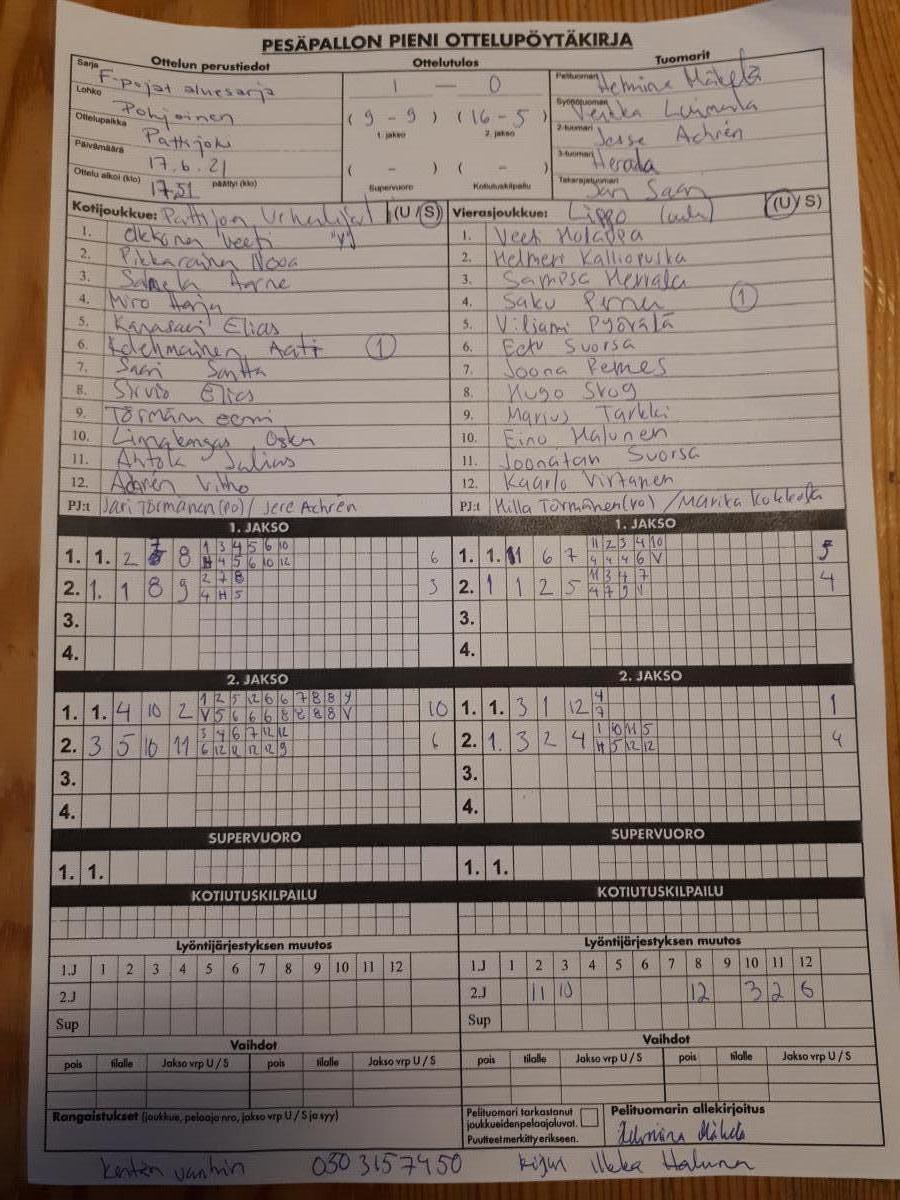 PESÄPALLON PIENI OTTELUPÖYTÄKIRJA
Ottelun perustiedot Ottelutulos Tuomarit
Sarja F-pojat aluesarja 1 — 0 Pelituomari Helmine Mäkelä
Lohko Pohjoinen ( 9 - 9 ) ( 16 - 5 ) Syöttötuomari
1. jakso 2. jakso
Ottelupaikka Pattijoki 2-tuomari Jesse Achrén
Päivämäärä 17.6.21 ( - ) ( - ) 3-tuomari
Ottelu alkoi (klo) 17.51 päättyi (klo) Supervuoro Kotiutuskilpailu Takarajatuomari Jan Saari
Kotijoukkue: Pattijoen Urheilijat (U / S) Vierasjoukkue: Lippo (U / S)
1. Okkonen Veeti "y" 1. Veeti
2. Pikkarainen Nooa 2. Helmeri Kalliopuska
3. Aarne 3. Sampsa Herrala
4. Miro Harju 4. Saku Pernu 1
5. Kanasaari Elias 5. Viljami Pyörälä
6. Kolehmainen Aati 1 6. Eetu Suorsa
7. Saari Santta 7. Joona Pernes
8. Sirviö Elias 8. Hugo Skog
9. Törmänen eemi 9. Marius Tarkki
10. Linnakangas Osku 10. Eino Halunen
11. Ahtola Julius 11. Joonatan Suorsa
12. Achrén Vilho 12. Kaarlo Virtanen
PJ:t Jari Törmänen(po)/ Jere Achrén PJ:t Milla Törmänen(po) / Marika Kokkoila
1. JAKSO 1. JAKSO
1. 1. 2 8 1 3 4 5 6 10 6 1. 1. 11 6 7 11 2 3 4 10 5
4 5 6 10 12 4 4 4 6 V
2. 1. 1 8 9 2 7 8 3 2. 1 1 2 5 11 3 4 7 4
4 H 5 4 7 9 V
3. 3.
4. 4.
2. JAKSO 2. JAKSO
1. 1. 4 10 2 1 2 5 12 6 6 7 8 8 9 10 1. 1. 3 1 12 4 1
V 5 6 6 6 8 8 8 8 V 7
2. 3 5 10 11 3 4 6 7 12 12 6 2. 1. 3 2 4 1 10 11 5 4
6 12 12 12 12 9 H 5 12 12
3. 3.
4. 4.
SUPERVUORO SUPERVUORO
1. 1. 1. 1.
KOTIUTUSKILPAILU KOTIUTUSKILPAILU
Lyöntijärjestyksen muutos Lyöntijärjestyksen muutos
1.J 1 2 3 4 5 6 7 8 9 10 11 12 1.J 1 2 3 4 5 6 7 8 9 10 11 12
2.J 2.J 11 10 12 3 2 6
Sup Sup
Vaihdot Vaihdot
pois tilalle Jakso vrp U / S pois tilalle Jakso vrp U / S pois tilalle Jakso vrp U / S pois tilalle Jakso vrp U / S
Rangaistukset (joukkue, pelaaja nro, jakso vrp U / S ja syy) Pelituomari tarkastanut Pelituomarin allekirjoitus
joukkueiden pelaajaluvat.
Puutteet merkitty erikseen. Helmine Mäkelä
Kentän vanhin 050 3157450 kirjuri Ilkka Halunen